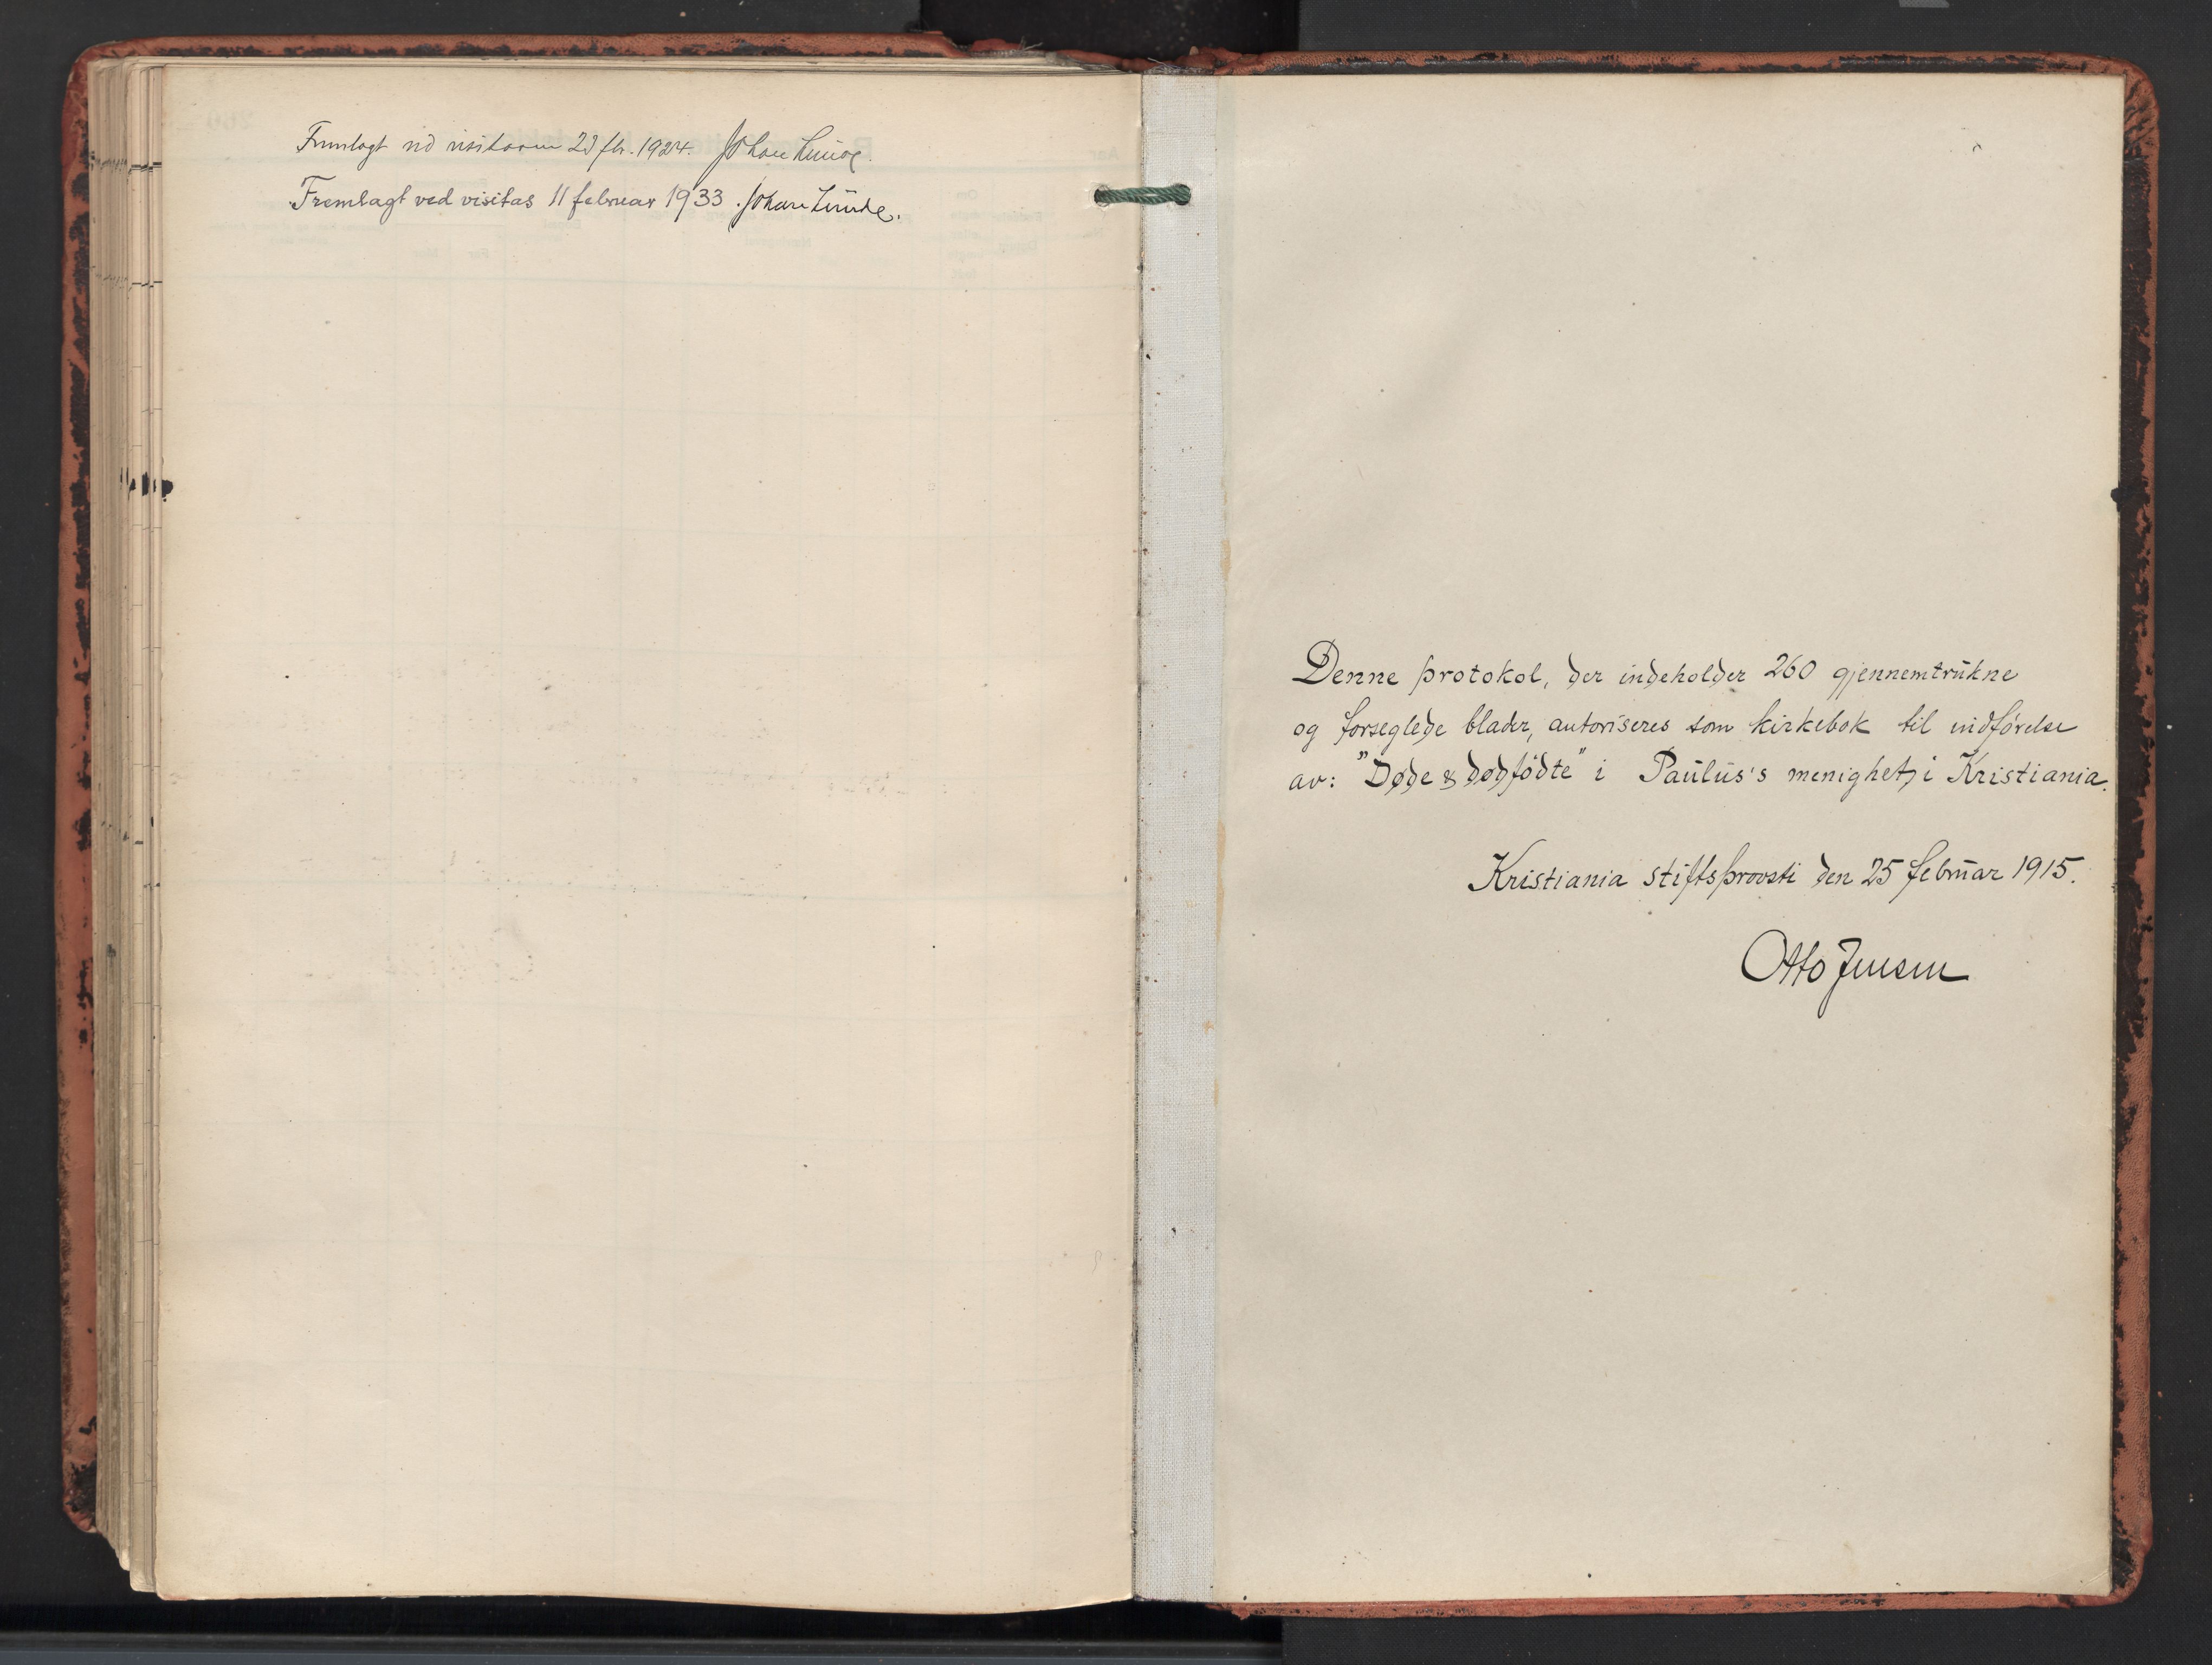 Fremlagt ved visitasen 23 fbr. 1924. Johan Lunde.
Fremlagt ved visitas 11 februar 1933. Johan Lunde.
Denne protokol, der indeholder 260 gjennemtrukne
og forseglede blader, autoriseres som kirkebok til indførelse
av: "Døde & dødfødte" i Paulus's menighet i Kristiania.
Kristiania stiftsprovsti den 25 februar 1915.
Otto Jensen